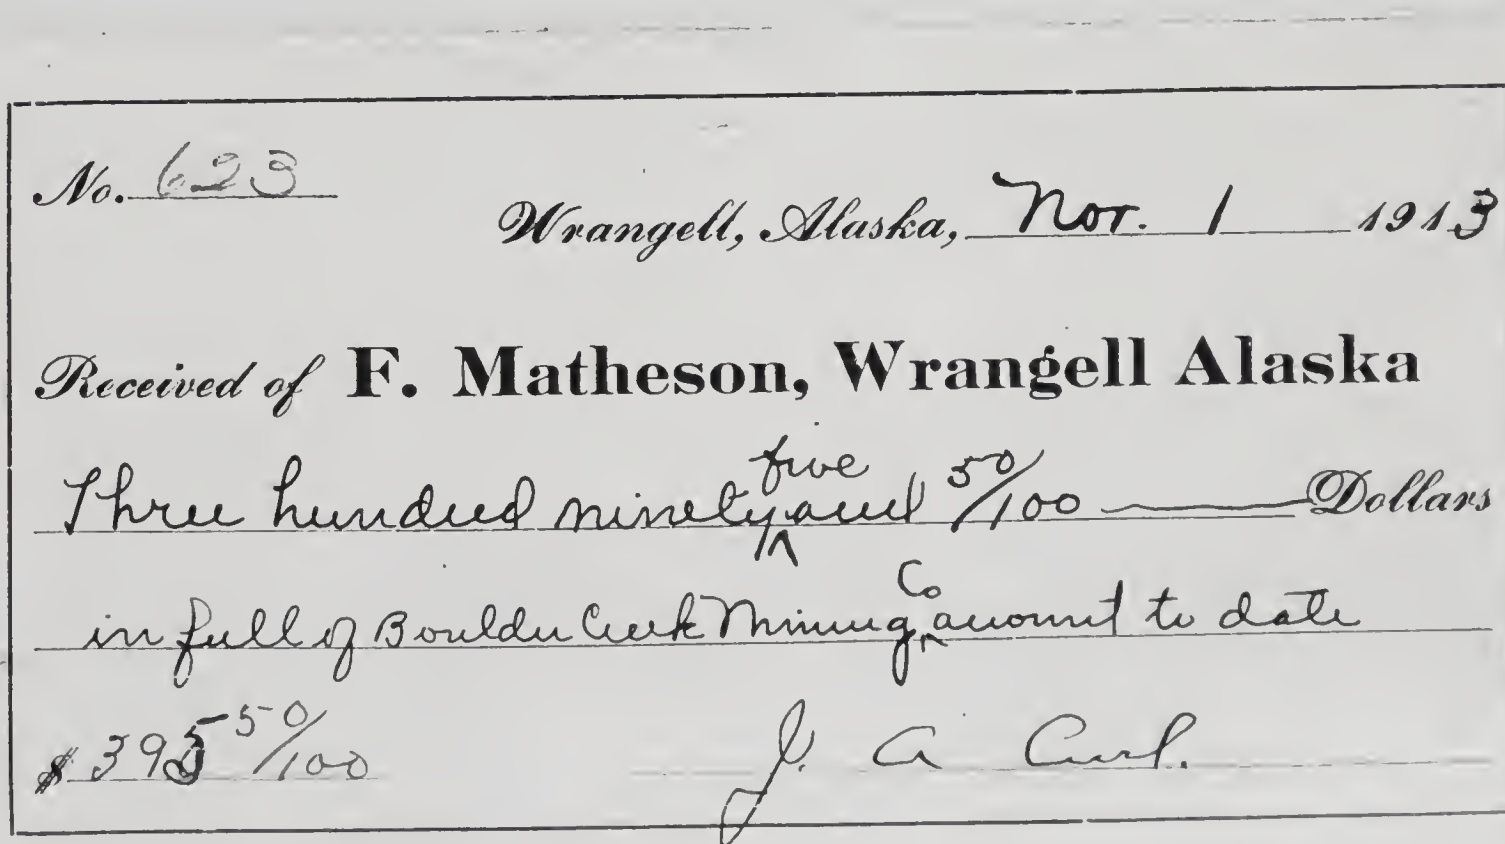 No. 623
Wrangell, Alaska, Nov. 1 1913
Received of F. Matheson, Wrangell Alaska
Three hundred ninety five and 50/100 Dollars
in full of Boulder Creek Mining Co account to date
$ 395 50/100
J. A